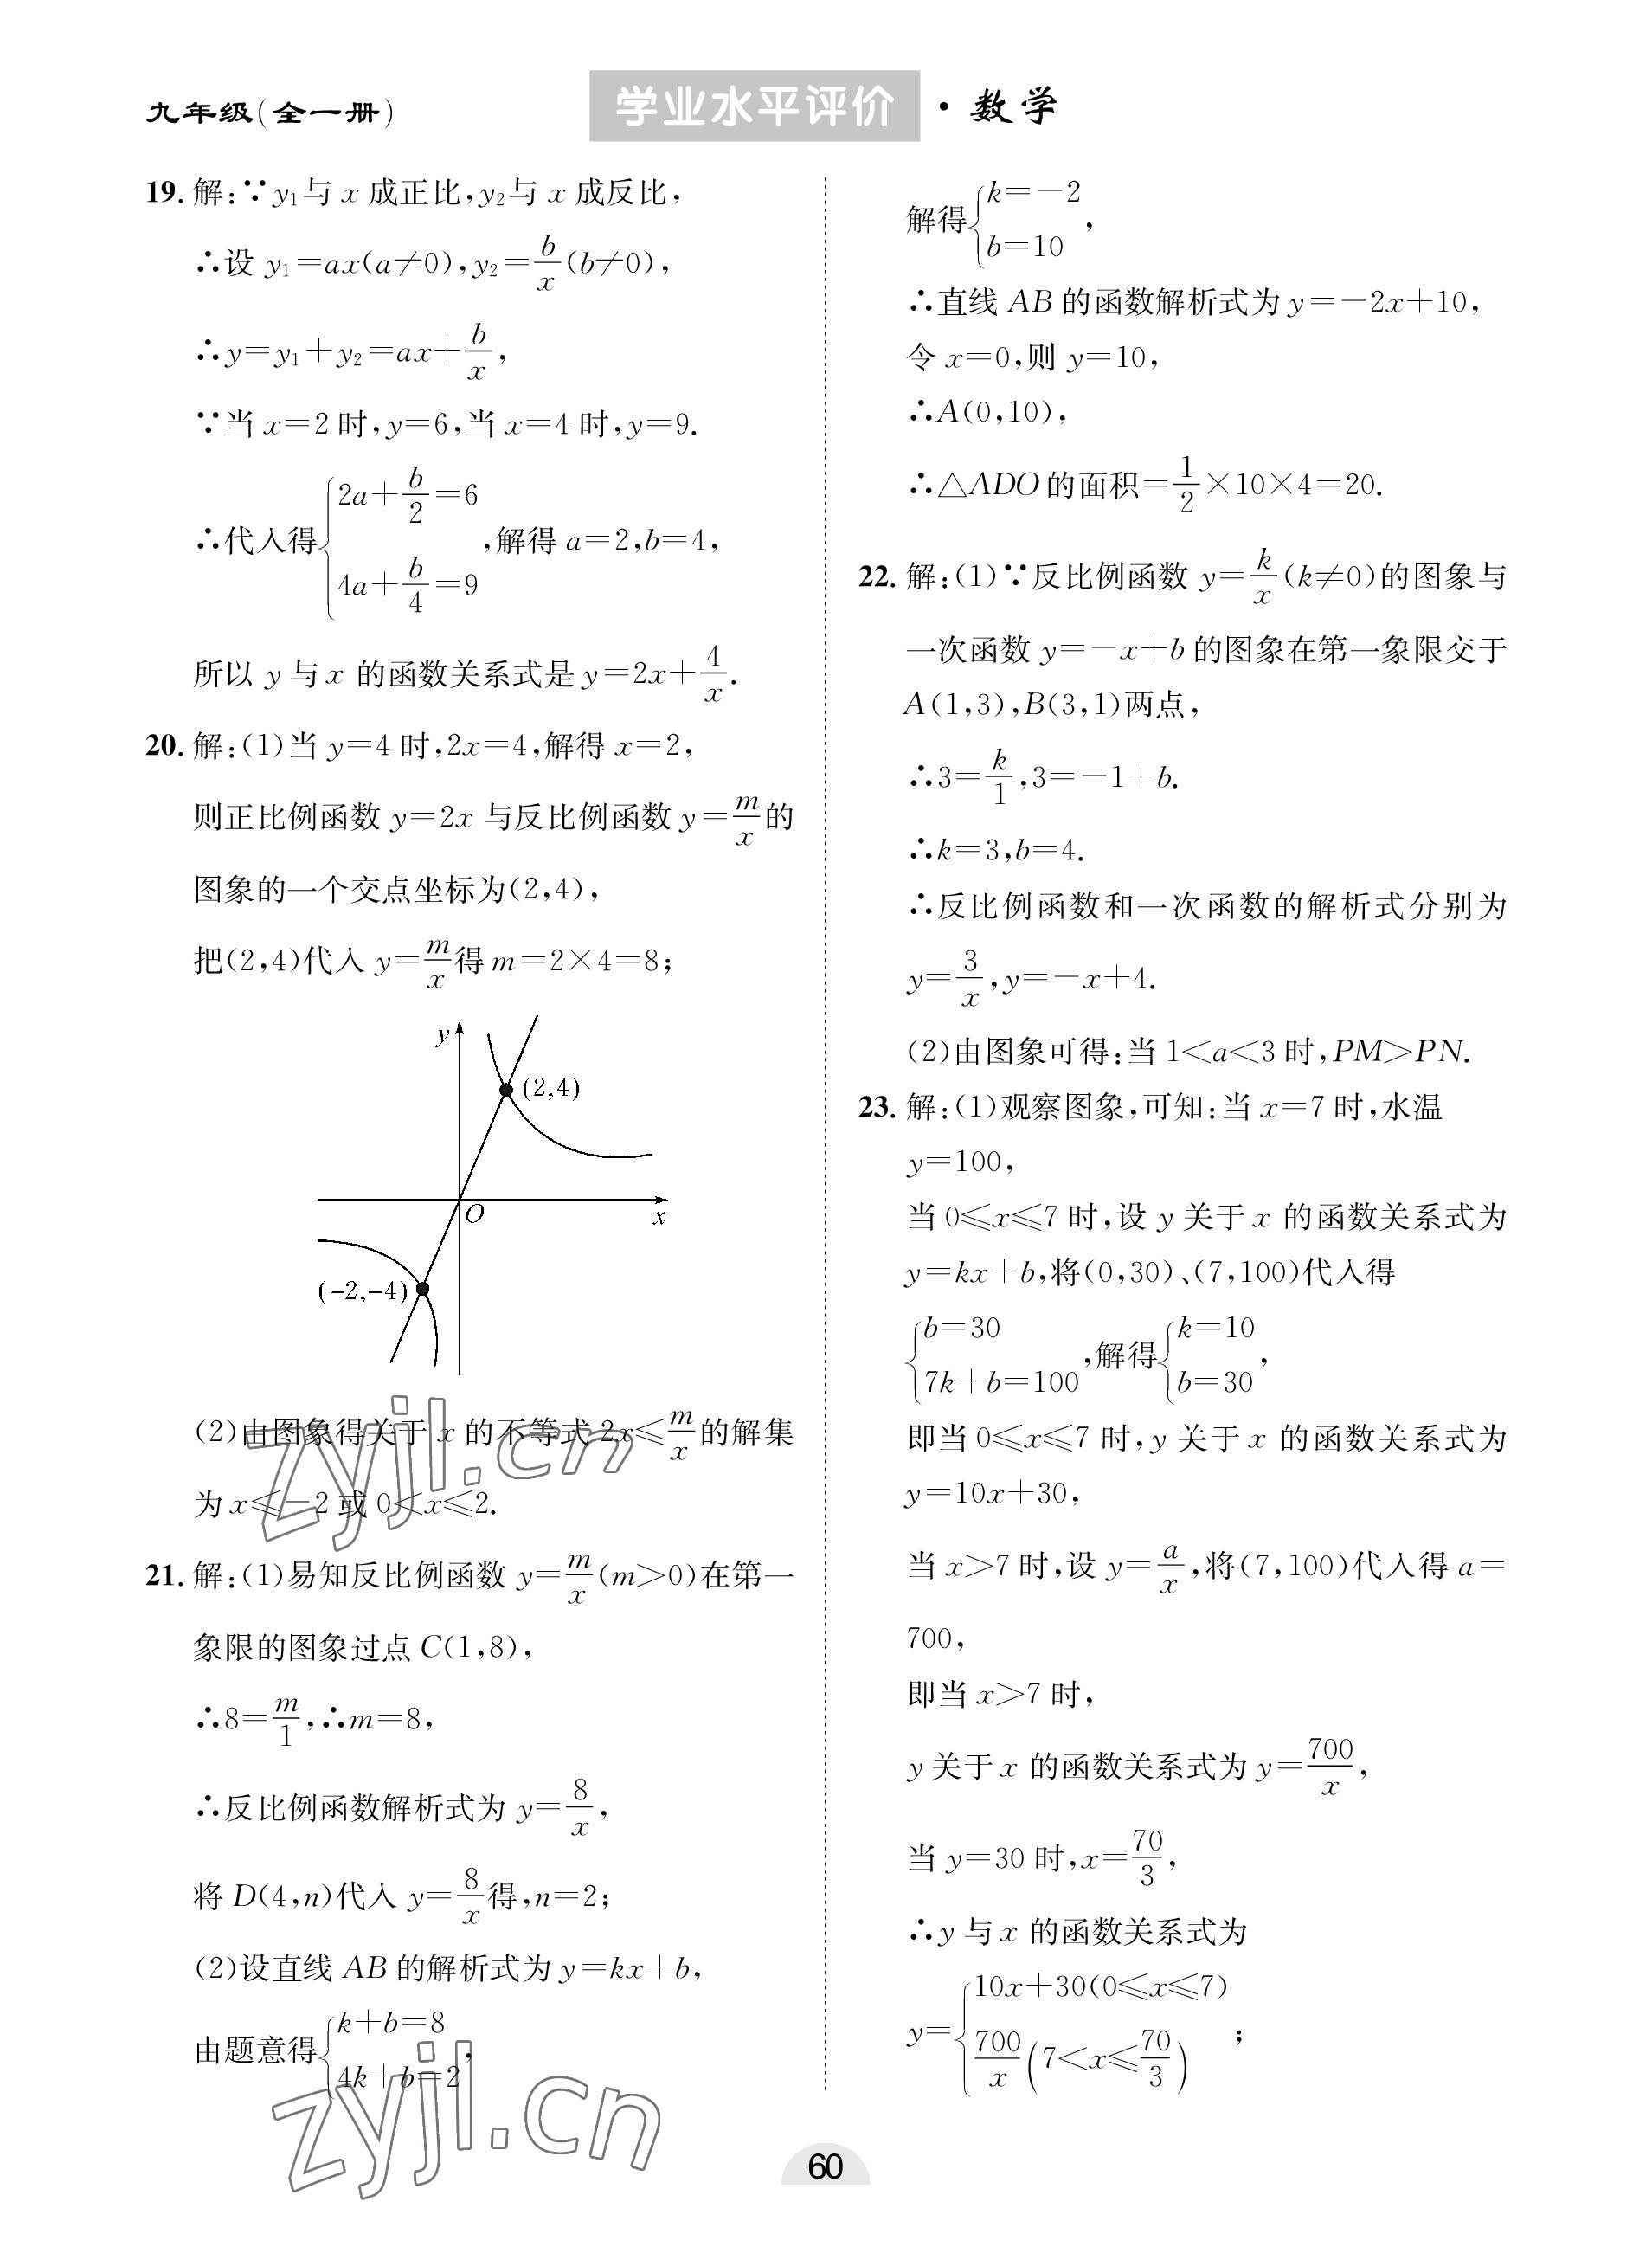 九年级(全一册)
学业水平评价·数学
19. 解:∵y₁与 x 成正比,y₂与 x 成反比,
∴设 y₁=ax(a≠0),y₂=b/x(b≠0),
∴y=y₁+y₂=ax+b/x,
∵当 x=2 时,y=6,当 x=4 时,y=9.
∴代入得{2a+b/2=6
4a+b/4=9 ,解得 a=2,b=4,
所以 y 与 x 的函数关系式是 y=2x+4/x.
20. 解:(1)当 y=4 时,2x=4,解得 x=2,
则正比例函数 y=2x 与反比例函数 y=m/x的
图象的一个交点坐标为(2,4),
把(2,4)代入 y=m/x得 m=2×4=8;
y
(2,4)
O
x
(-2,-4)
(2)由图象得关于 x 的不等式 2x≤m/x的解集
为 x≤-2 或 0<x≤2.
21. 解:(1)易知反比例函数 y=m/x(m>0)在第一
象限的图象过点 C(1,8),
∴8=m/1,∴m=8,
∴反比例函数解析式为 y=8/x,
将 D(4,n)代入 y=8/x得,n=2;
(2)设直线 AB 的解析式为 y=kx+b,
由题意得{k+b=8
4k+b=2 ,
解得{k=-2
b=10 ,
∴直线 AB 的函数解析式为 y=-2x+10,
令 x=0,则 y=10,
∴A(0,10),
∴△ADO 的面积=1/2×10×4=20.
22. 解:(1)∵反比例函数 y=k/x(k≠0)的图象与
一次函数 y=-x+b 的图象在第一象限交于
A(1,3),B(3,1)两点,
∴3=k/1,3=-1+b.
∴k=3,b=4.
∴反比例函数和一次函数的解析式分别为
y=3/x,y=-x+4.
(2)由图象可得:当 1<a<3 时,PM>PN.
23. 解:(1)观察图象,可知:当 x=7 时,水温
y=100,
当 0≤x≤7 时,设 y 关于 x 的函数关系式为
y=kx+b,将(0,30)、(7,100)代入得
{b=30
7k+b=100 ,解得{k=10
b=30 ,
即当 0≤x≤7 时,y 关于 x 的函数关系式为
y=10x+30,
当 x>7 时,设 y=a/x,将(7,100)代入得 a=
700,
即当 x>7 时,
y 关于 x 的函数关系式为 y=700/x,
当 y=30 时,x=70/3,
∴y 与 x 的函数关系式为
y={10x+30(0≤x≤7)
700/x(7<x≤70/3) ;
zyjl.cn
zyjl.cn
60